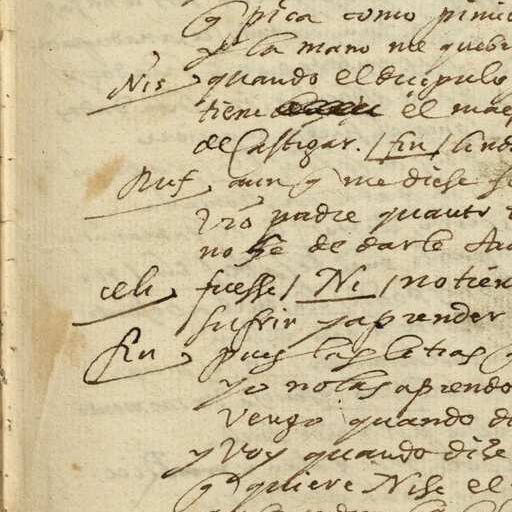 q pica como pimie
y la mano me queb
Nis quando el dicipulo
tiene el mae
de Castigar. / fin / lind
Ruf aun q me diese
Vro padre quanto
no he de darle
celi fuesse / Ni / no tien
sufrir y aprender
fin pues las letras
yo no las aprendo
vengo quando di
y voy quando dise
q quiere Nise el